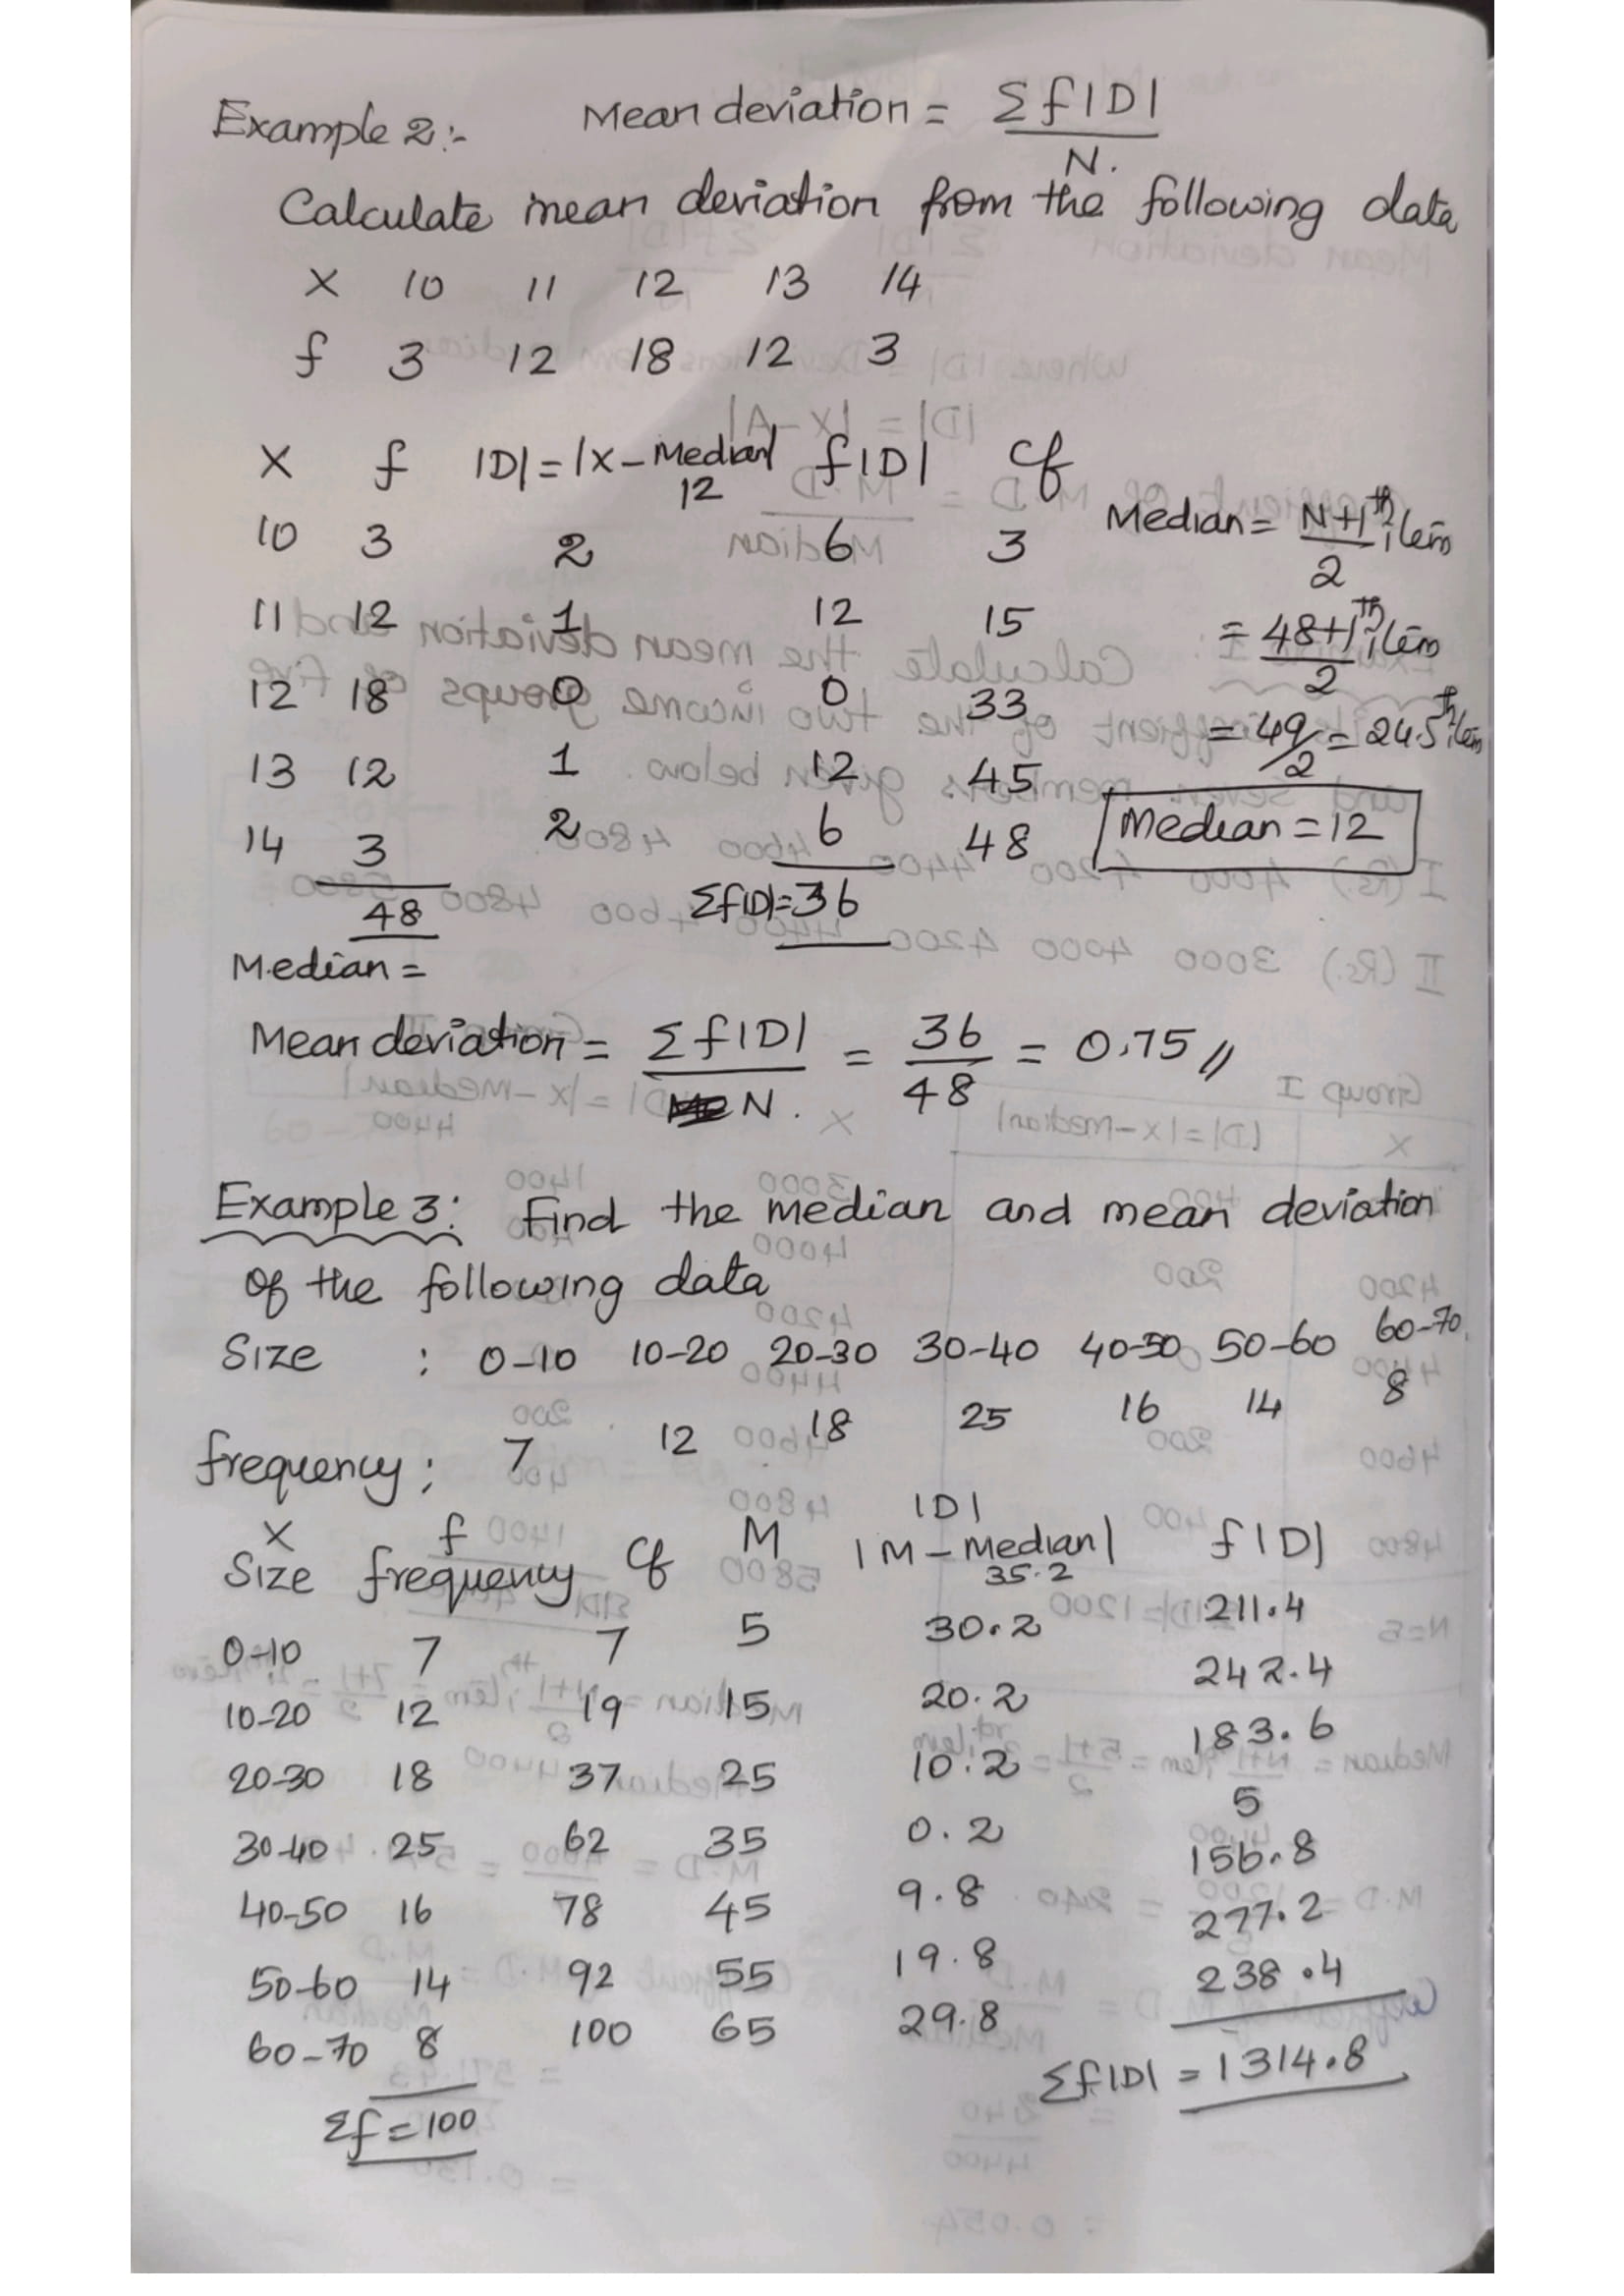 Example 2:- Mean deviation = Σf|D| / N.
Calculate mean deviation from the following data
X 10 11 12 13 14
f 3 12 18 12 3
X f |D|=|X-Median| 12 f|D| cf
10 3 2 6 3 Median = N+1/2 th item
11 12 1 12 15 = 48+1/2 th item
12 18 0 0 33 = 49/2 = 24.5th item
13 12 1 12 45
14 3 2 6 48 Median = 12
48 Σf|D|=36
Median =
Mean deviation = Σf|D| / N. = 36/48 = 0.75 //
Example 3: Find the median and mean deviation
of the following data
Size : 0-10 10-20 20-30 30-40 40-50 50-60 60-70
frequency: 7 12 18 25 16 14 8
X f M |D|
Size frequency cf |M-Median| 35.2 f|D|
0-10 7 7 5 30.2 211.4
10-20 12 19 15 20.2 242.4
20-30 18 37 25 10.2 183.6
30-40 25 62 35 0.2 5
40-50 16 78 45 9.8 156.8
50-60 14 92 55 19.8 277.2
60-70 8 100 65 29.8 238.4
Σf=100 Σf|D| = 1314.8